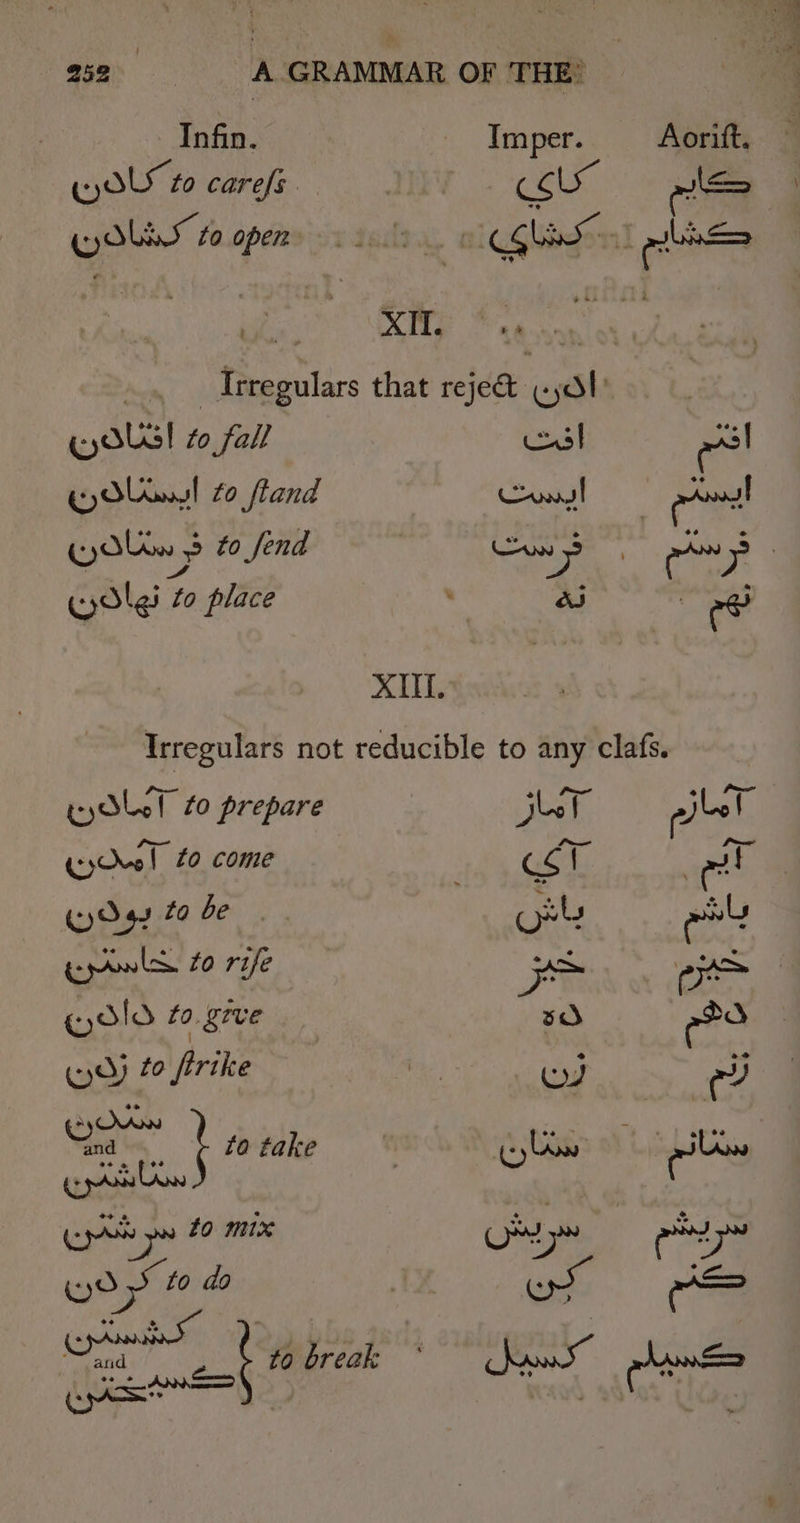 252 A GRAMMAR OF THE
Infin. Imper. Aoriſt.
كادن to careſs كاي كايم
كشادن to open كشاي كشايم
XII.
Irregulars that reject ادن
افتادن to fall افت افتم
ايستادن to ſtand ايست ايستم
فرستادن to ſend فرست فرستم
نهادن to place نه نهم
XIII.
Irregulars not reducible to any claſs.
آمادن to prepare آماز آمازم
آمدن to come آي آيم
بودن to be باش باشم
خاستن to riſe خيز خيزم
دادن to give ده دهم
زدن to ſtrike زن زنم
ستدن and ستاندن to take ستان ستانم
سرشتن to mix سريش سريشم
كردن to do كن كنم
and to break كسل كسلم